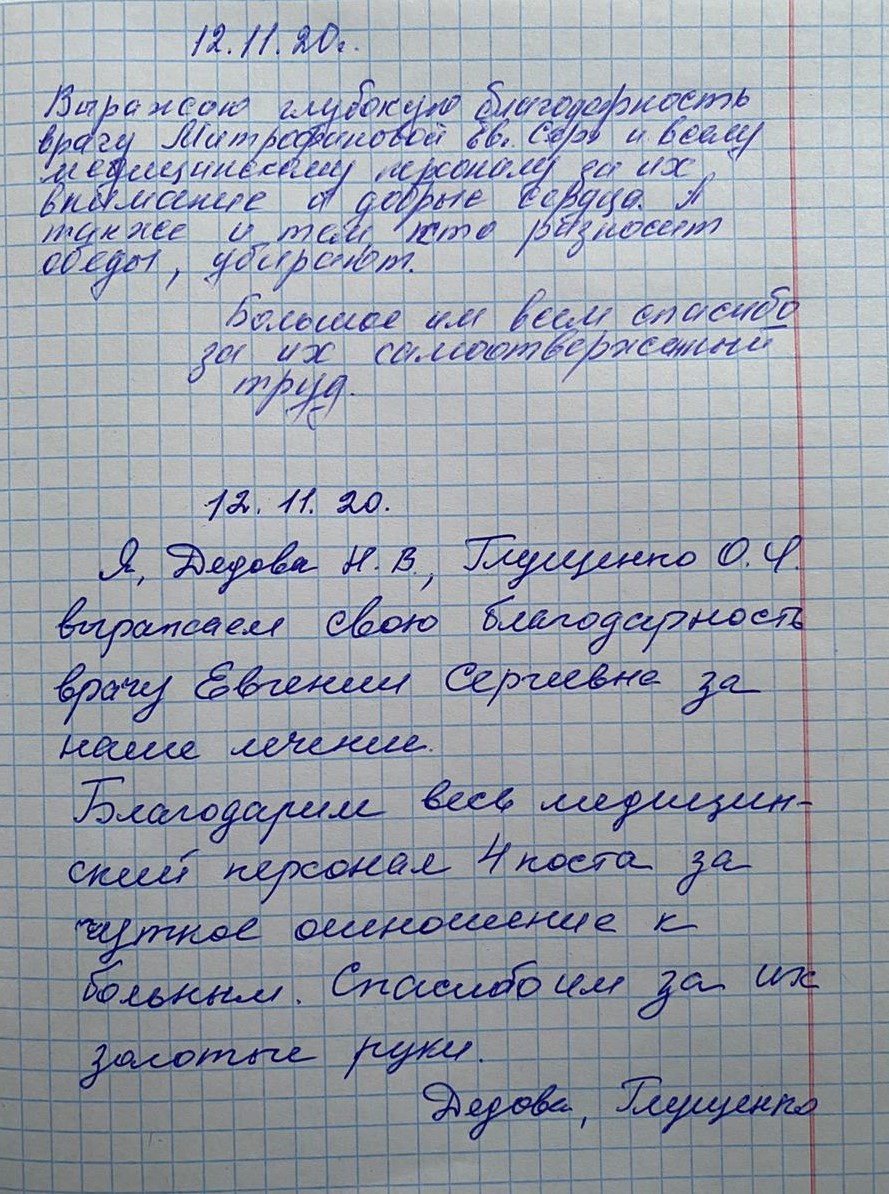 12.11.20г.
Выражаю глубокую благодарность
врачу Митрофановой Ев. Серг и всему
медицинскому персоналу за их
внимание и добрые сердца. А
также и тем, кто разносит
обеды, убирают.
Большое им всем спасибо
за их самоотверженный
труд.
12. 11. 20.
Я, Дедова Н. В., Глущенко О. Ч.
выражаем свою благодарность
врачу Евгении Сергиевне за
наше лечение.
Благодарим весь медицин-
ский персонал 4 поста за
чуткое отношение к
больным. Спасибо им за их
золотые руки.
Дедова, Глущенко